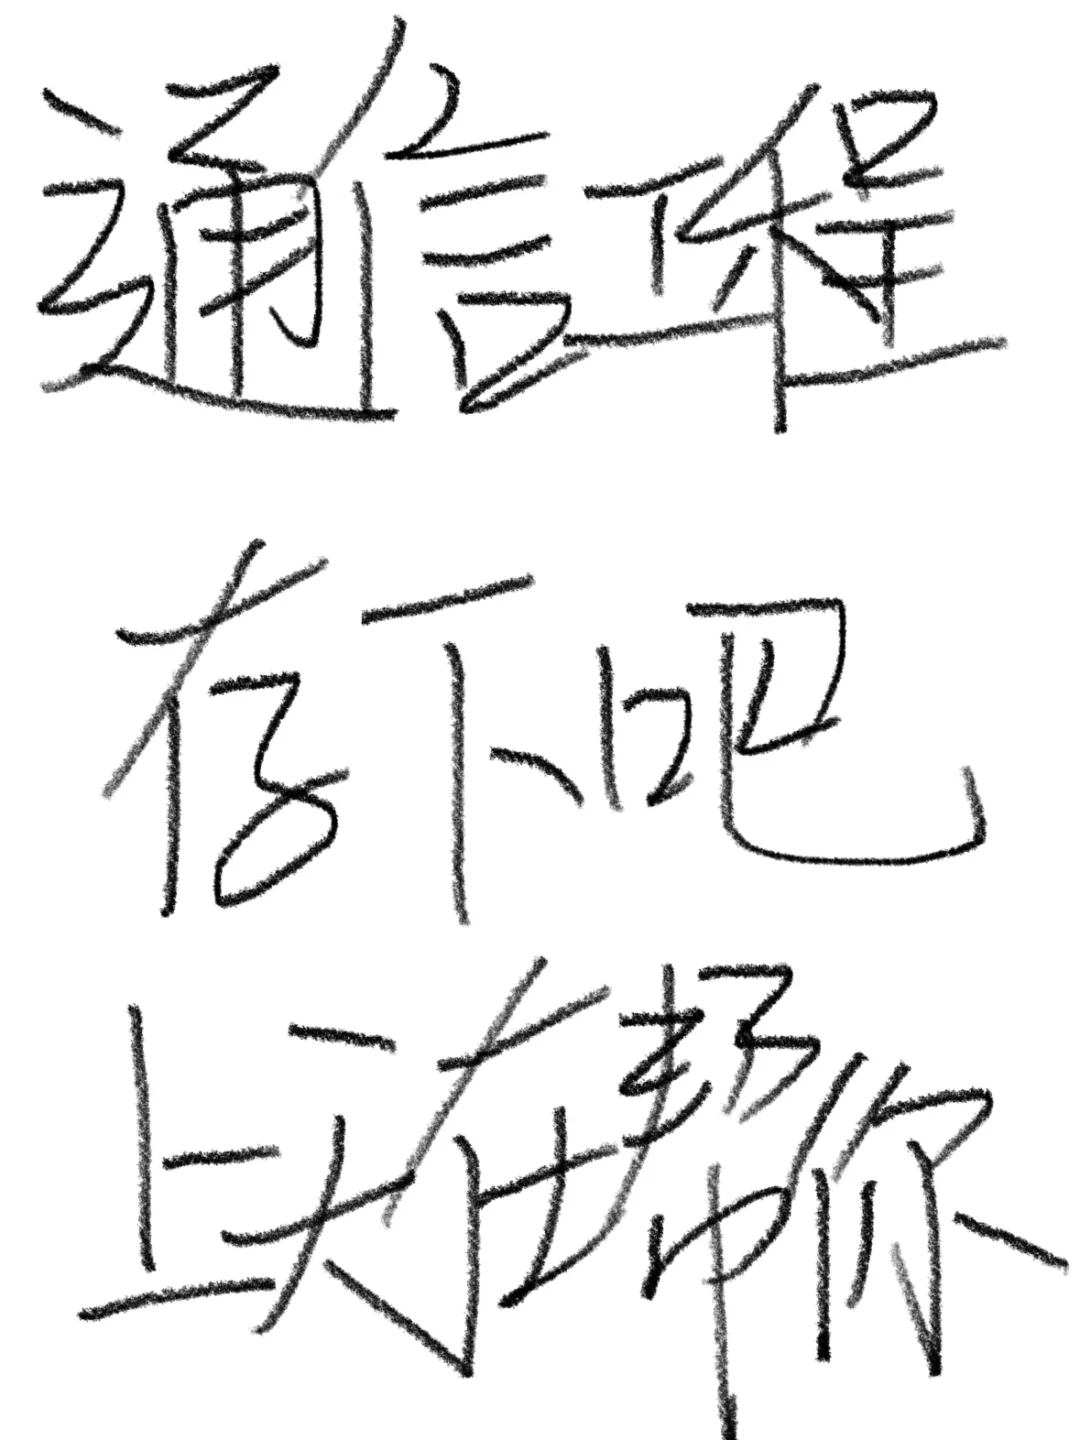 通信工程
存下吧
上天在帮你